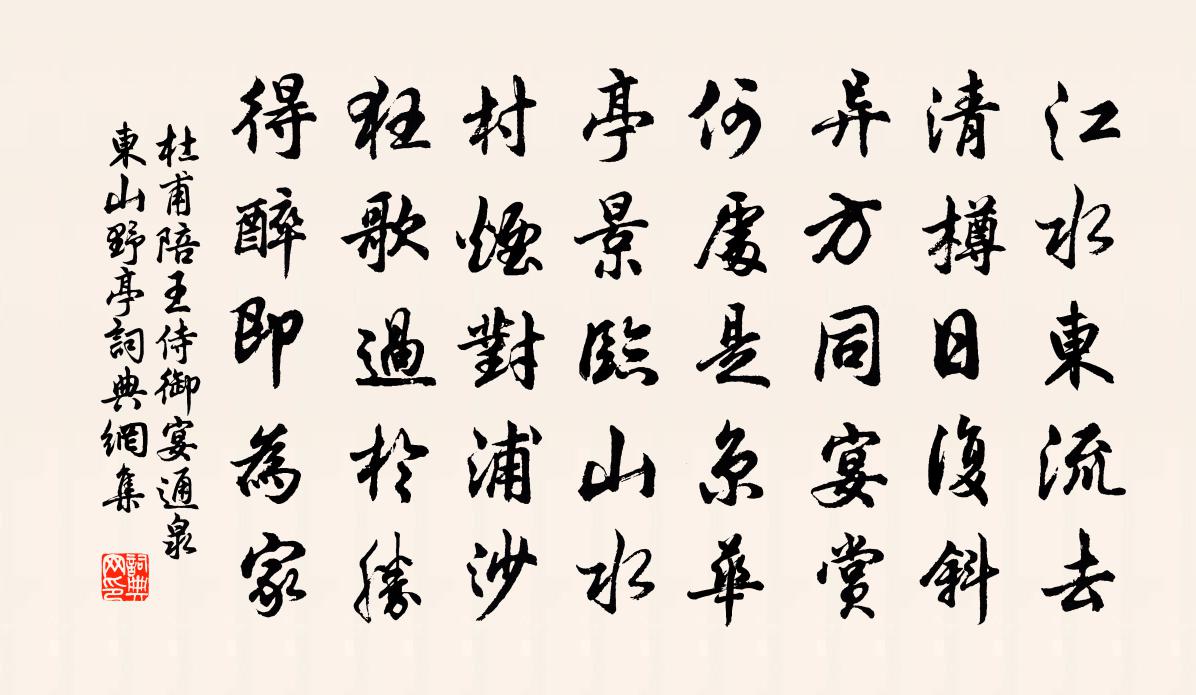 江水東流去
清樽日復斜
异方同宴賞
何處是京華
亭景臨山水
村煙對浦沙
狂歌過於勝
得醉即為家
杜甫陪王侍御宴通泉
東山野亭詞典網集
詞典
网印